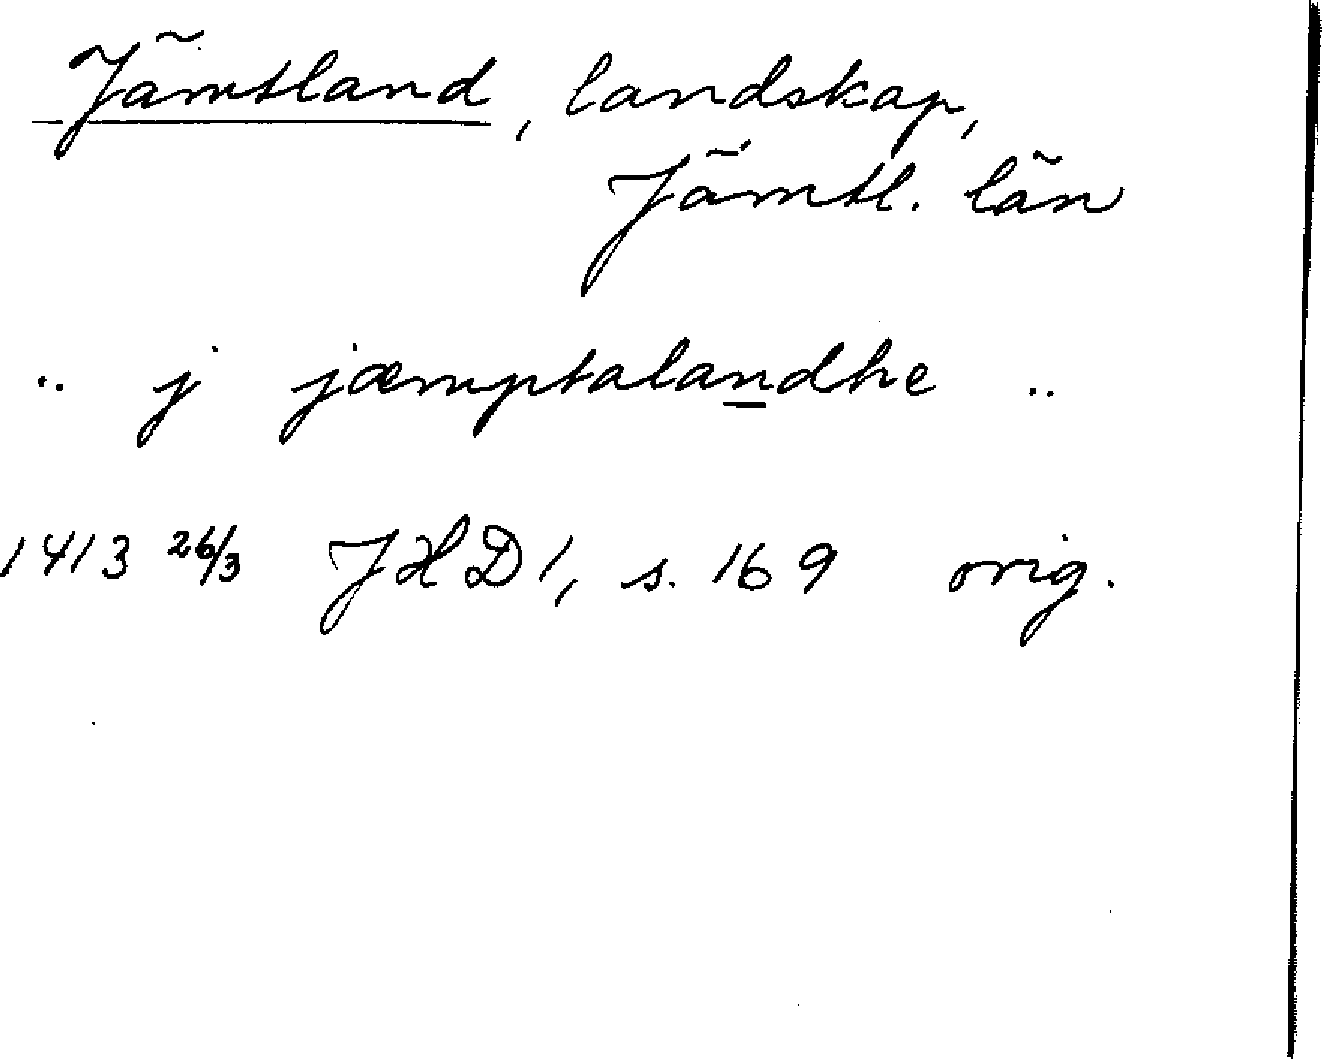 Jämtland, landskap,
Jämtl. län
.. j jæmptalandhe ..
1413 26/3 JHD 1, s. 169 orig.